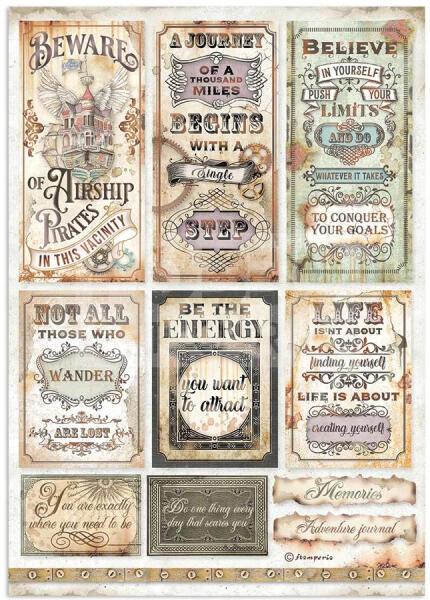 BEWARE
OF AIRSHIP
PIRATES
IN THIS VACINITY
A JOURNEY
OF A
THOUSAND
MILES
BEGINS
WITH A
Single
STEP
BELIEVE
IN YOURSELF
PUSH YOUR
LIMITS
AND DO
WHATEVER IT TAKES
TO CONQUER
YOUR GOALS
NOT ALL
THOSE WHO
WANDER
ARE LOST
BE THE
ENERGY
you want
to attract
LIFE
IS'NT ABOUT
finding yourself
LIFE IS ABOUT
creating yourself
You are exactly
where you need to be
Do one thing every
day that scares you
Memories
Adventure journal
© Stamperia